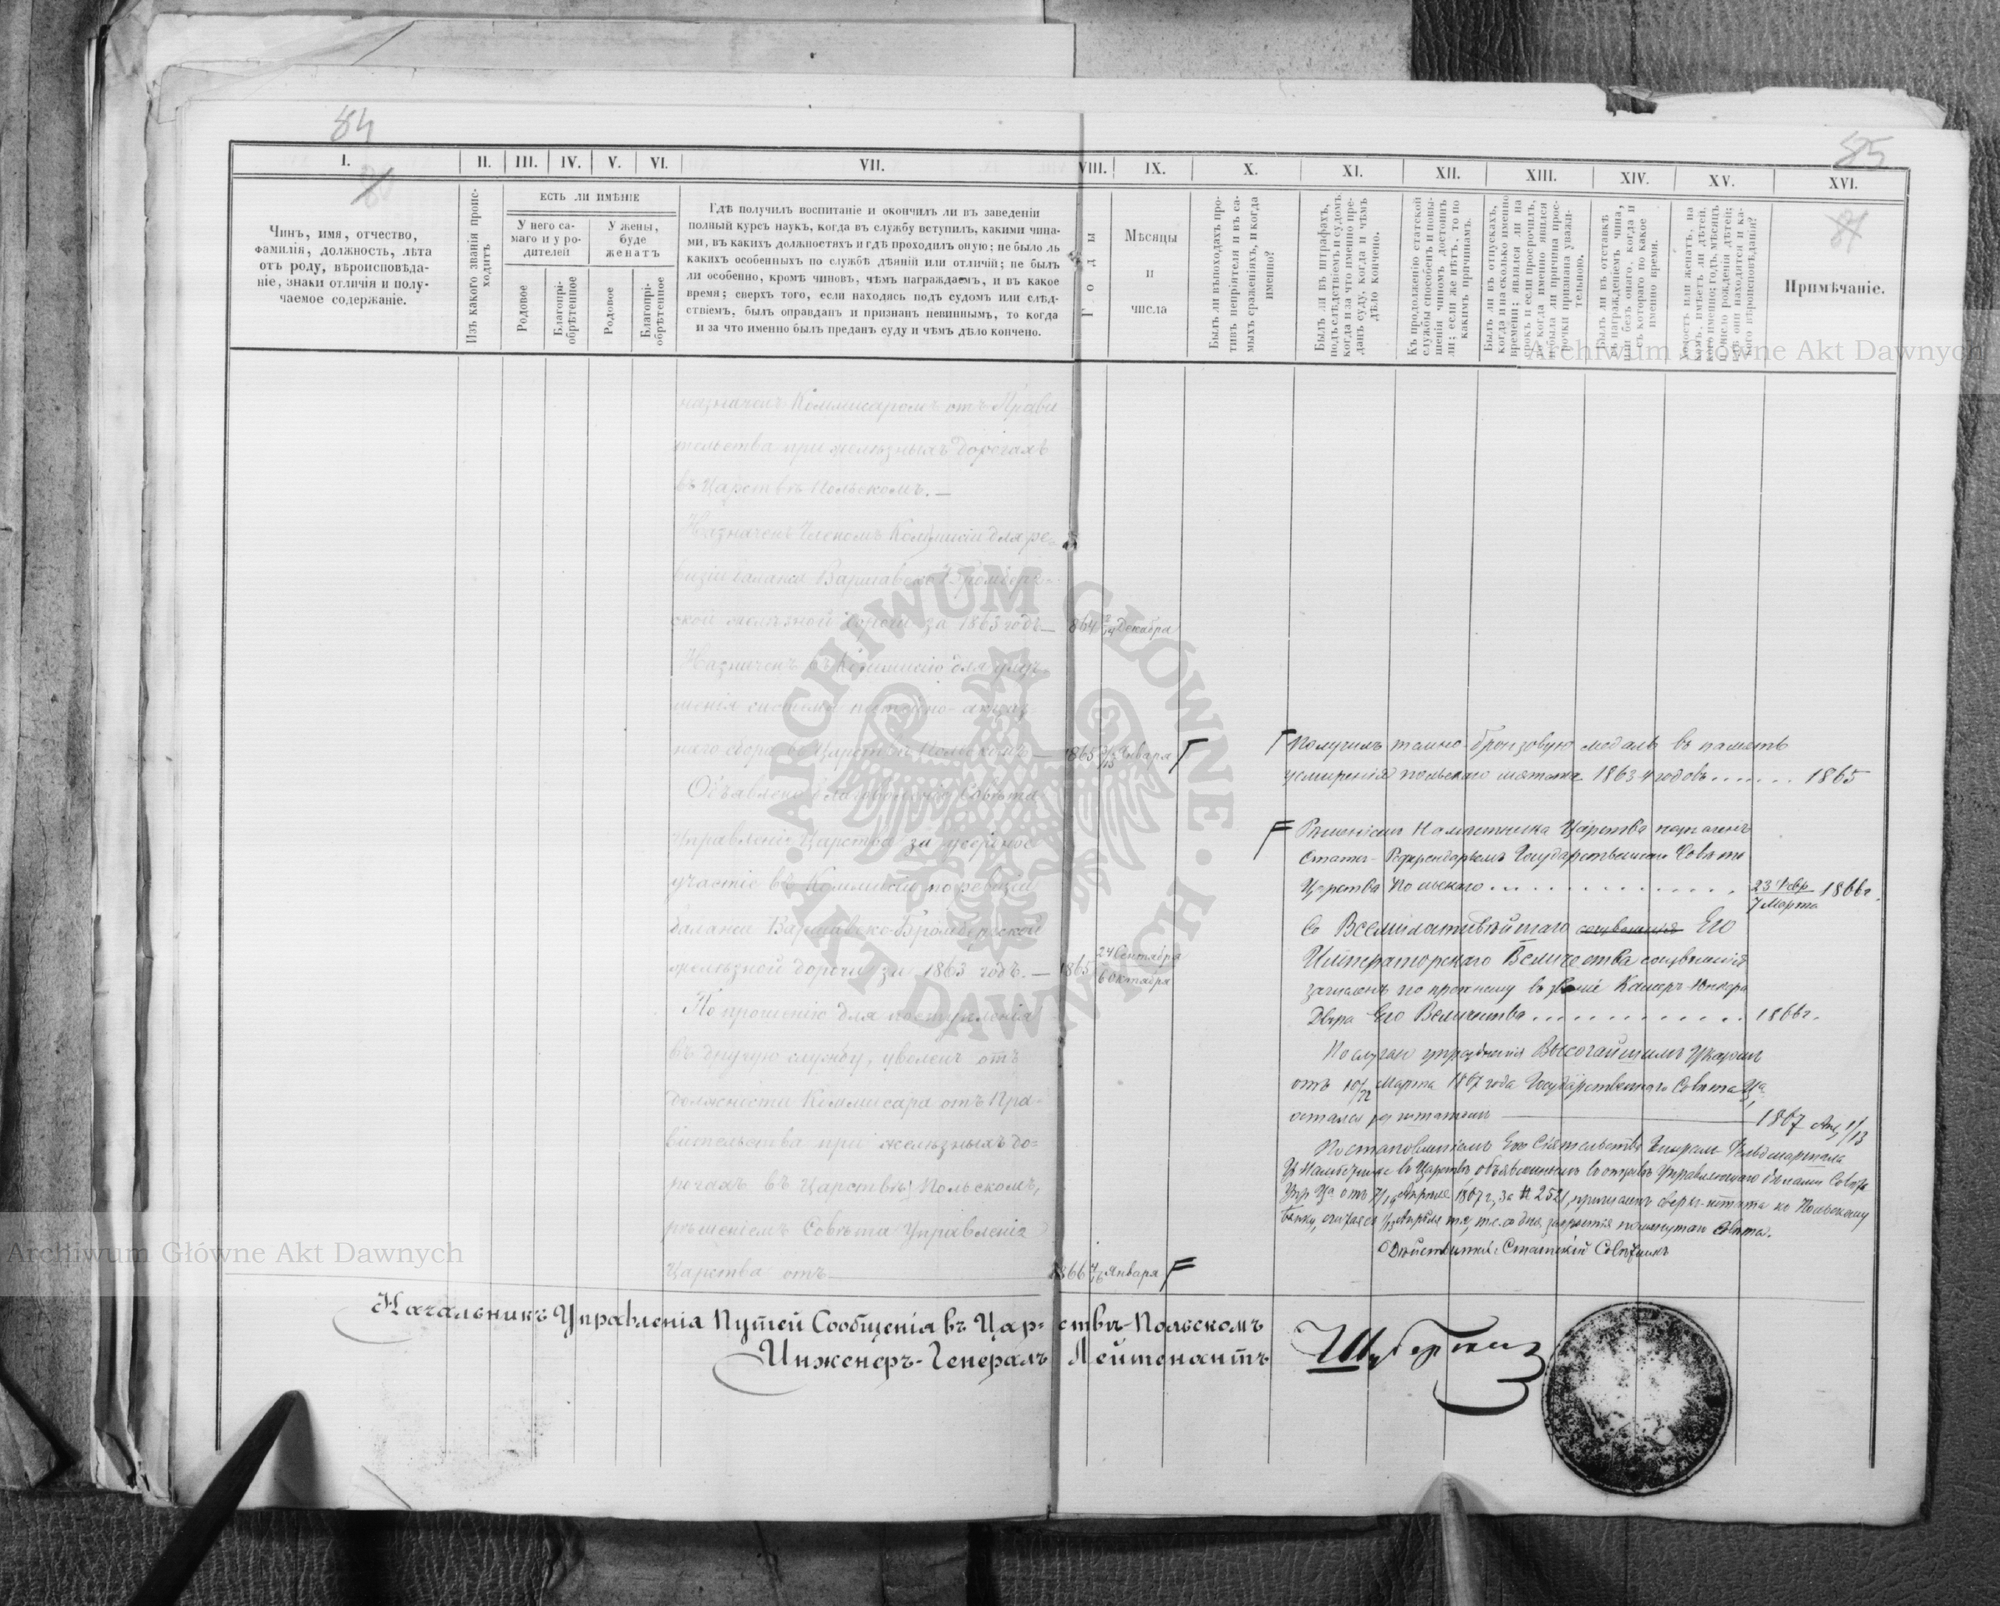 84
85
I.
II.
III.
IV.
V.
VI.
VII.
VIII.
IX.
X.
XI.
XII.
XIII.
XIV.
XV.
XVI.
Чинъ, имя, отчество,
фамилія, должность, лѣта
отъ роду, вѣроисповѣда-
ніе, знаки отличія и полу-
чаемое содержаніе.
Изъ какого званія проис-
ходитъ
ЕСТЬ ЛИ ИМѢНІЕ
У него са-
маго и у ро-
дителей
У жены,
буде
женатъ
Родовое
Благопрі-
обрѣтенное
Родовое
Благопрі-
обрѣтенное
Гдѣ получилъ воспитаніе и окончилъ ли въ заведеніи
полный курсъ наукъ, когда въ службу вступилъ, какими чина-
ми, въ какихъ должностяхъ и гдѣ проходилъ оную; не было ль
какихъ особенныхъ по службѣ дѣяній или отличій; не былъ
ли особенно, кромѣ чиновъ, чѣмъ награждаемъ, и въ какое
время; сверхъ того, если находясь подъ судомъ или слѣд-
ствіемъ, былъ оправданъ и признанъ невиннымъ, то когда
и за что именно былъ преданъ суду и чѣмъ дѣло кончено.
Годы
Мѣсяцы
и
числа
Былъ ли въ походахъ про-
тивъ непріятеля и въ са-
мыхъ сраженіяхъ, и когда
именно?
Былъ ли въ штрафахъ,
подъ слѣдствіемъ и судомъ,
когда и за что именно пре-
данъ суду, когда и чѣмъ
дѣло кончено.
Къ продолженію статской
службы способенъ и повы-
шенія чиномъ достоинъ
ли; если же нѣтъ, то по
какимъ причинамъ.
Былъ ли въ отпускахъ,
когда и на сколько именно
времени; явился ли на
срокъ и если просрочилъ,
то когда именно явился
и была ли причина прос-
рочки признана уважи-
тельною.
Былъ ли въ отставкѣ
съ награжденіемъ чина,
или безъ онаго, когда и
съ котораго по какое
именно время.
Холостъ или женатъ, на
комъ, имѣетъ ли дѣтей,
кого именно; годъ, мѣсяцъ
и число рожденія дѣтей;
гдѣ они находятся и ка-
кого вѣроисповѣданія?
Примѣчаніе.
назначенъ Коммисаромъ отъ Прави
тельства при желѣзныхъ дорогахъ
въ Царствѣ Польскомъ. —
Назначенъ Членомъ Коммисіи для ре-
визіи баланса Варшавско-Бромберг-
ской желѣзной дороги за 1863 годъ — 1864 Декабря
Назначенъ въ Коммисію для улуч-
шенія системы питейно-акциз
наго сбора въ Царствѣ Польскомъ — 1865 Января
Объявлено благоволеніе Совѣта
Управленія Царства за усердное
участіе въ Коммисіи по ревизіи
баланса Варшавско-Бромбергской
желѣзной дороги за 1863 годъ. — 1865 24 Сентября
6 Октября
По прошенію для поступленія
въ другую службу, уволенъ отъ
должности Коммисара отъ Пра-
вительства при желѣзныхъ до-
рогахъ въ Царствѣ Польскомъ,
рѣшеніемъ Совѣта Управленія
Царства отъ — 1866 4/16 Января
Получилъ темно-бронзовую медаль въ память
усмиренія польскаго мятежа 1863-4 годовъ ...... 1865
Рѣшеніемъ Намѣстника Царства назначенъ
Статсъ-Референдаремъ Государственнаго Совѣта
Царства Польскаго ............ 23 Февр 1866 г.
7 Марта
Съ Всемилостивѣйшаго соизволенія Его
Императорскаго Величества соизволенія
зачисленъ по прежнему въ званіе Камеръ-Юнкера
Двора Его Величества ............ 1866 г.
По случаю упраздненія Высочайшимъ Указомъ
отъ 10/22 Марта 1867 года Государственнаго Совѣта Ца,
остался за штатомъ — 1867 Апр 1/13
Постановленіемъ Его Сіятельства Генерала Фельдмаршала
Намѣстника въ Царствѣ, объявленнымъ въ отзывѣ Управляющаго дѣлами Совѣта
Упр Ца отъ Апрѣля 1867 г, за № 2521, причисленъ сверхъ-штата къ Польскому
Банку, считая съ 1/13 Апрѣля т. е. со дня закрытія помянутаго Совѣта.
Дѣйствительный Статскій Совѣтникъ
Начальникъ Управленія Путей Сообщенія въ Цар-ствѣ-Польскомъ
Инженеръ-Генералъ Лейтенантъ Шуберскій
Archiwum Główne Akt Dawnych
Archiwum Główne Akt Dawnych
ARCHIWUM GŁÓWNE · AKT DAWNYCH ·